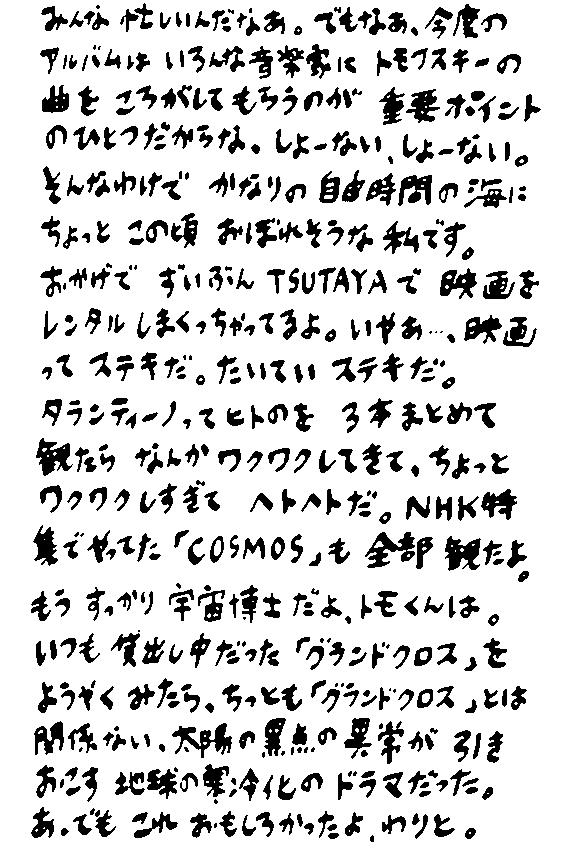 みんな 忙しいんだなあ。でもなあ、今度の
アルバムは いろんな音楽家に トモフスキーの
曲を ころがしてもらうのが 重要ポイント
のひとつだからな、しょーない、しょーない。
そんなわけで かなりの自由時間の海に
ちょっと この頃 おぼれそうな 私です。
おかげで ずいぶん TSUTAYAで 映画を
レンタルしまくっちゃってるよ。いやあ…、映画
って ステキだ。たいてい ステキだ。
タランティーノってヒトのを 3本まとめて
観たら なんかワクワクしてきて、ちょっと
ワクワクしすぎて ヘトヘトだ。NHK特
集でやってた「COSMOS」も 全部 観たよ。
もう すっかり 宇宙博士だよ、トモくんは。
いつも 貸出し中だった「グランドクロス」を
ようやく みたら、ちっとも「グランドクロス」とは
関係ない、太陽の黒点の異常が 引き
おこす 地球の寒冷化の ドラマだった。
あ、でも これ おもしろかったよ、わりと。